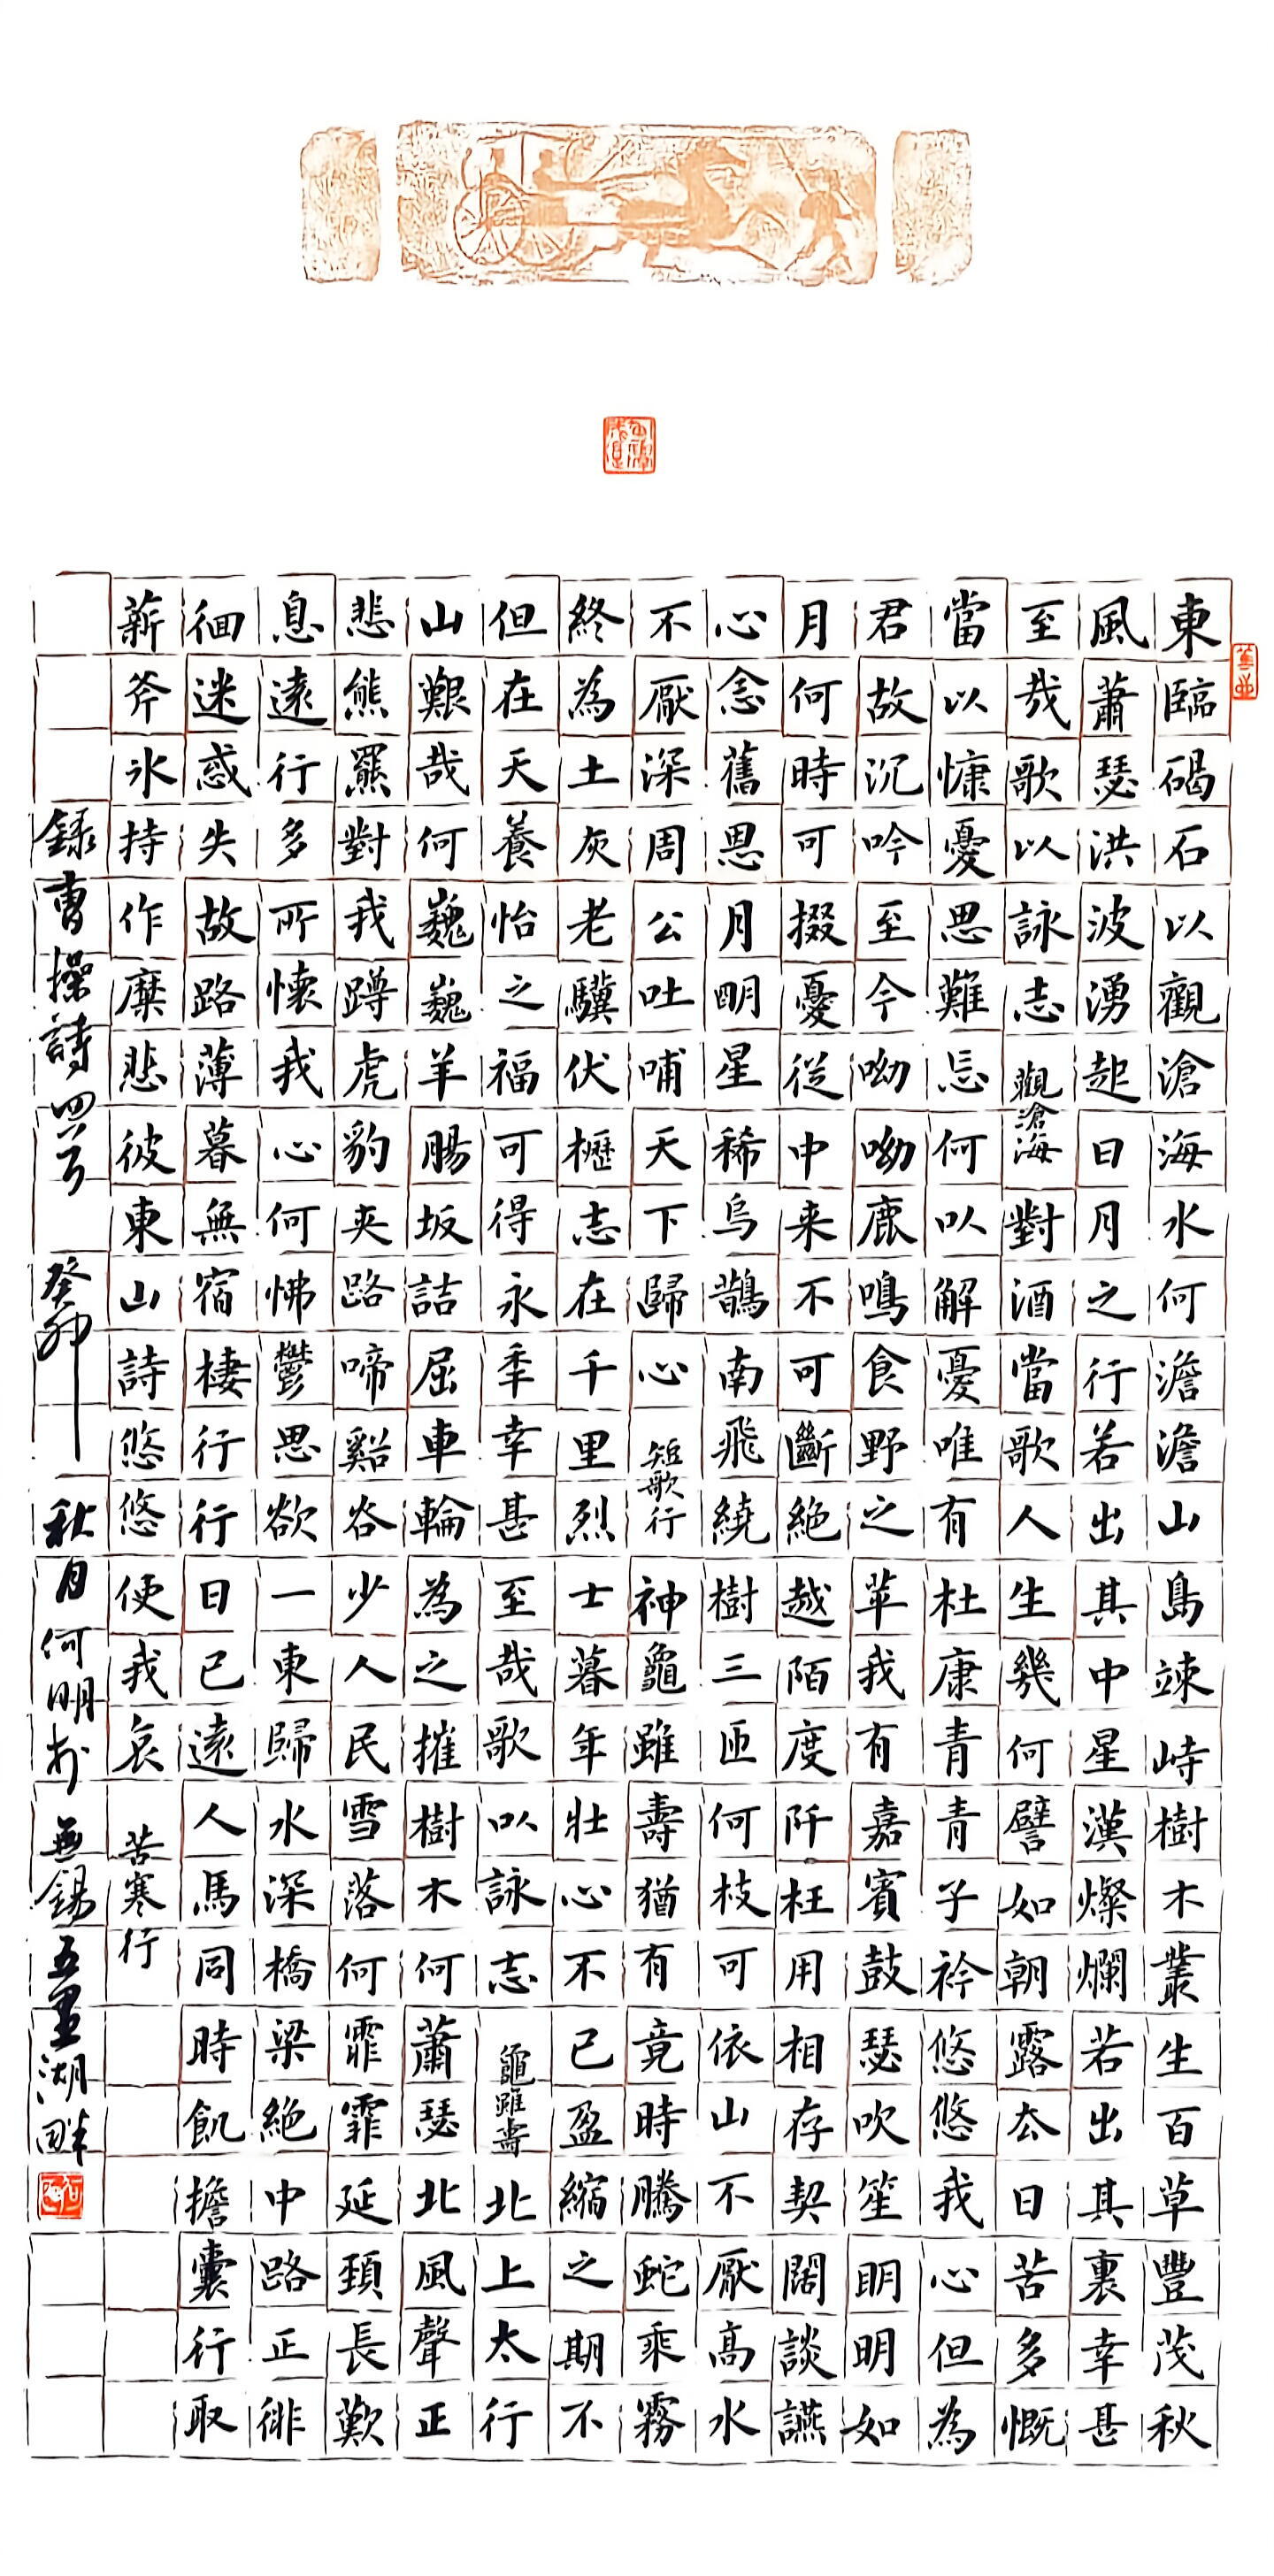 東臨碣石以觀滄海水何澹澹山島竦峙樹木叢生百草豐茂秋
風蕭瑟洪波湧起日月之行若出其中星漢燦爛若出其裏幸甚
至哉歌以詠志 觀滄海 對酒當歌人生幾何譬如朝露去日苦多慨
當以慷憂思難忘何以解憂唯有杜康青青子衿悠悠我心但為
君故沉吟至今呦呦鹿鳴食野之苹我有嘉賓鼓瑟吹笙明明如
月何時可掇憂從中来不可斷絕越陌度阡枉用相存契闊談讌
心念舊恩月明星稀烏鵲南飛繞樹三匝何枝可依山不厭高水
不厭深周公吐哺天下歸心 短歌行 神龜雖壽猶有竟時騰蛇乘霧
終為土灰老驥伏櫪志在千里烈士暮年壯心不已盈縮之期不
但在天養怡之福可得永年幸甚至哉歌以詠志 龜雖壽 北上太行
山艱哉何巍巍羊腸坂詰屈車輪為之摧樹木何蕭瑟北風聲正
悲熊羆對我蹲虎豹夾路啼谿谷少人民雪落何霏霏延頸長歎
息遠行多所懷我心何怫鬱思欲一東歸水深橋梁絕中路正徘
徊迷惑失故路薄暮無宿棲行行日已遠人馬同時飢擔囊行取
薪斧冰持作糜悲彼東山詩悠悠使我哀 苦寒行
録曹操詩四首 癸卯秋月何明於無錫五里湖畔